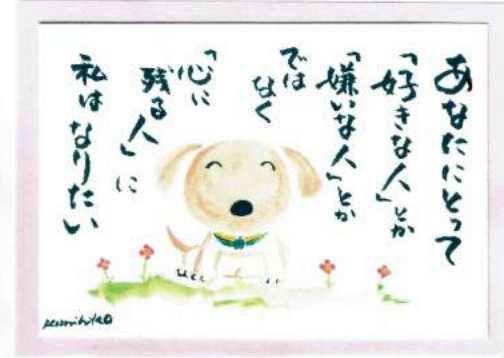 あなたにとって
「好きな人」とか
「嫌いな人」とか
では
なく
「心に
残る人」に
私はなりたい